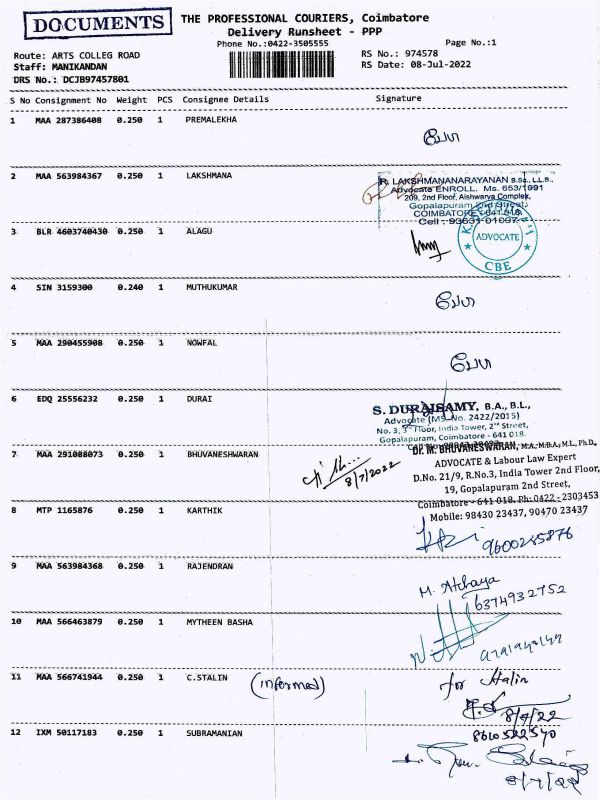 DOCUMENTS
THE PROFESSIONAL COURIERS, Coimbatore
Delivery Runsheet - PPP
Phone No.:0422-3505555
Page No.:1
Route: ARTS COLLEG ROAD
Staff: MANIKANDAN
DRS No.: DCJB97457801
RS No.: 974578
RS Date: 08-Jul-2022
S No Consignment No Weight PCS Consignee Details Signature
1 MAA 287386408 0.250 1 PREMALEKHA
2 MAA 563984367 0.250 1 LAKSHMANA
R. LAKSHMANANARAYANAN B.Sc., LL.B.,
Advocate ENROLL. Ms. 653/1991
209, 2nd Floor, Aishwarya Complex,
Gopalapuram 2nd Street,
COIMBATORE - 641 018.
Cell :
3 BLR 4603740430 0.250 1 ALAGU
ADVOCATE
CBE
4 SIN 3159300 0.240 1 MUTHUKUMAR
5 MAA 290455908 0.250 1 NOWFAL
6 EDQ 25556232 0.250 1 DURAI
S. DURAISAMY, B.A., B.L.,
Advocate (MS. No. 2422/2015)
No. 3, 3rd Floor, India Tower, 2nd Street,
Gopalapuram, Coimbatore - 641 018.
7 MAA 291088073 0.250 1 BHUVANESHWARAN
8/7/2022
Dr. M. BHUVANESWARAN, M.A., M.B.A., M.L., Ph.D.,
ADVOCATE & Labour Law Expert
D.No. 21/9, R.No.3, India Tower 2nd Floor,
19, Gopalapuram 2nd Street,
Coimbatore - 641 018. Ph: 0422 - 2303453
Mobile: 98430 23437, 90470 23437
8 MTP 1165876 0.250 1 KARTHIK
9600285876
9 MAA 563984368 0.250 1 RAJENDRAN
M. Atchaya
6374932752
10 MAA 566463879 0.250 1 MYTHEEN BASHA
11 MAA 566741944 0.250 1 C.STALIN
(informed)
for Stalin
8/7/22
8610522540
12 IXM 50117183 0.250 1 SUBRAMANIAN
8/7/22